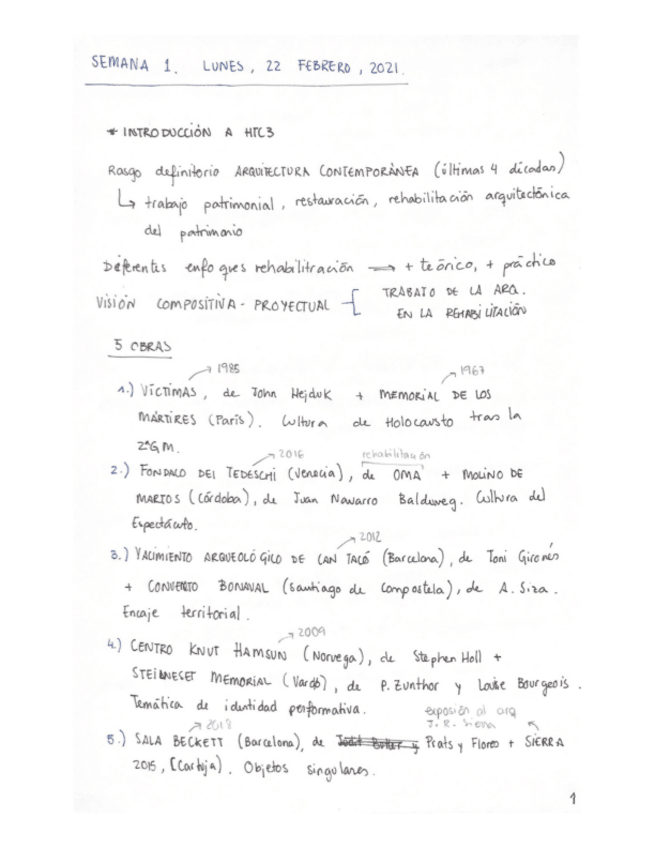 SEMANA 1. LUNES, 22 FEBRERO, 2021.
* INTRODUCCIÓN A HTC3
Rasgo definitorio ARQUITECTURA CONTEMPORÁNEA (últimas 4 décadas)
↳ trabajo patrimonial, restauración, rehabilitación arquitectónica
del patrimonio
Diferentes enfoques rehabilitración → + teórico, + práctico
VISIÓN COMPOSITIVA - PROYECTUAL { TRABAJO DE LA ARQ.
EN LA REHABILITACIÓN
5 OBRAS
1985
1967
1.) VÍCTIMAS, de John Hejduk + MEMORIAL DE LOS
MÁRTIRES (París). Cultura de Holocausto tras la
2ªG.M.
2016
rehabilitación
2.) FONDACO DEI TEDESCHI (Venecia), de OMA + MOLINO DE
MARTOS (Córdoba), de Juan Navarro Baldeweg. Cultura del
Espectáculo.
2012
3.) YACIMIENTO ARQUEOLÓGICO DE CAN TACÓ (Barcelona), de Toni Gironés
+ CONVENTO BONAVAL (Santiago de Compostela), de A. Siza.
Encaje territorial.
2009
4.) CENTRO KNUT HAMSUN (Noruega), de Stephen Holl +
STEILNESET MEMORIAL (Vardø), de P. Zunthor y Louise Bourgeois.
Temática de identidad performativa.
2018
exposión al arq
J. R. Sierra
5.) SALA BECKETT (Barcelona), de Prats y Flores + SIERRA
2015, (Cartuja). Objetos singulares.
1